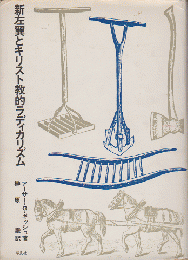 新左翼とキリスト教的ラディカリズム
アーサー・G・ギッシュ著
榊原 巖訳
平凡社